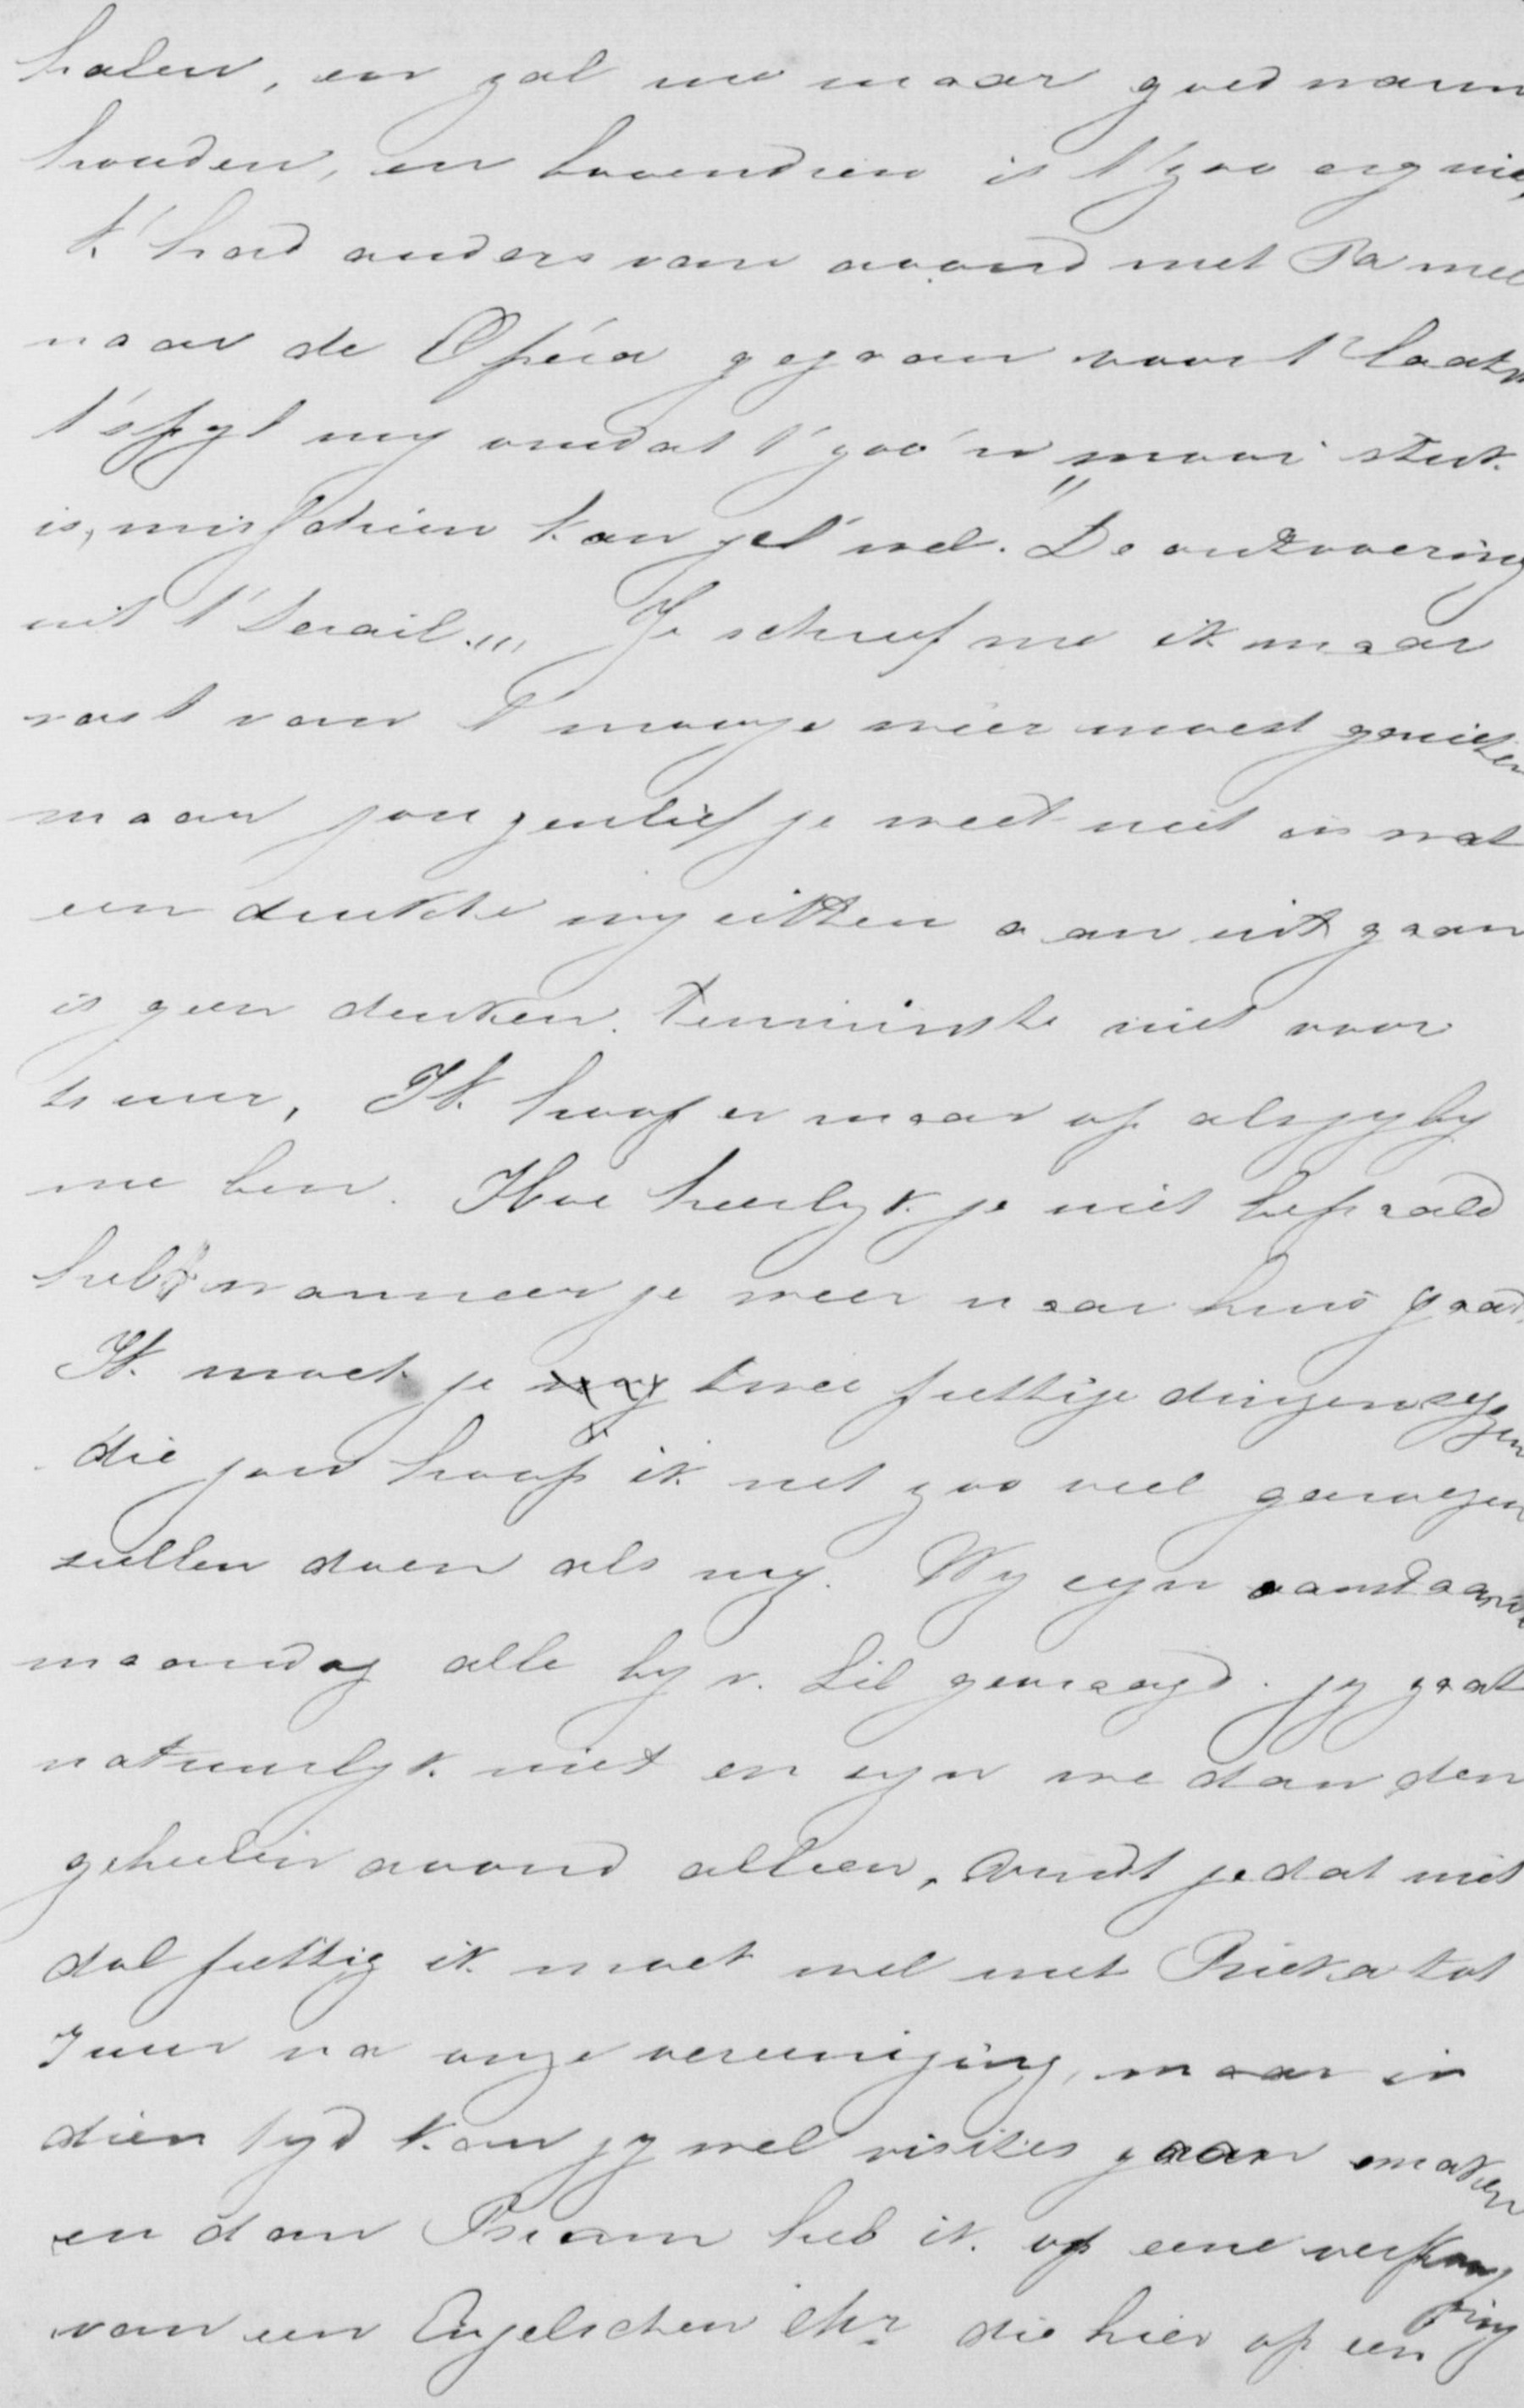 halen, en zal me maar goed warm
houden, en bovendien is t'zoo erg niet,
k'had anders van avond met Pa mee
naar de Opéra gegaan voor t'laatst
t'spyt my omdat t'zoo'n „mooi stuk
is, misschien kan je t'wel. De ontvoering
uit t'Serail.„ Je schreef me ik maar
vast van t'mooye weer moest genieten
maar jongenlief je weet niet in wat
een drukte wy zitten aan uitgaan
is geen denken. Tenminste niet voor
4 uur, Ik hoop er maar op als jy by
me ben. Hoe heerlyk je niet bepaald
hebt wanneer je weer naar huis gaat,
Ik moet je nog twee prettige dingen zeggen
die jou hoop ik net zoo veel genoegen
zullen doen als my. Wy zyn aanstaande
maandag alle by v. Lil gevraagd. jy gaat
natuurlyk niet en zyn we dan den
geheelen avond alleen, vindt je dat niet
dol prettig ik moet wel met Rieka tot
7 uur na onze vereeniging, maar in
dien tyd kan jy wel visites gaan maken
en dan Bram heb ik op eene verkooping
van een Engelschen Mr. die hier op een